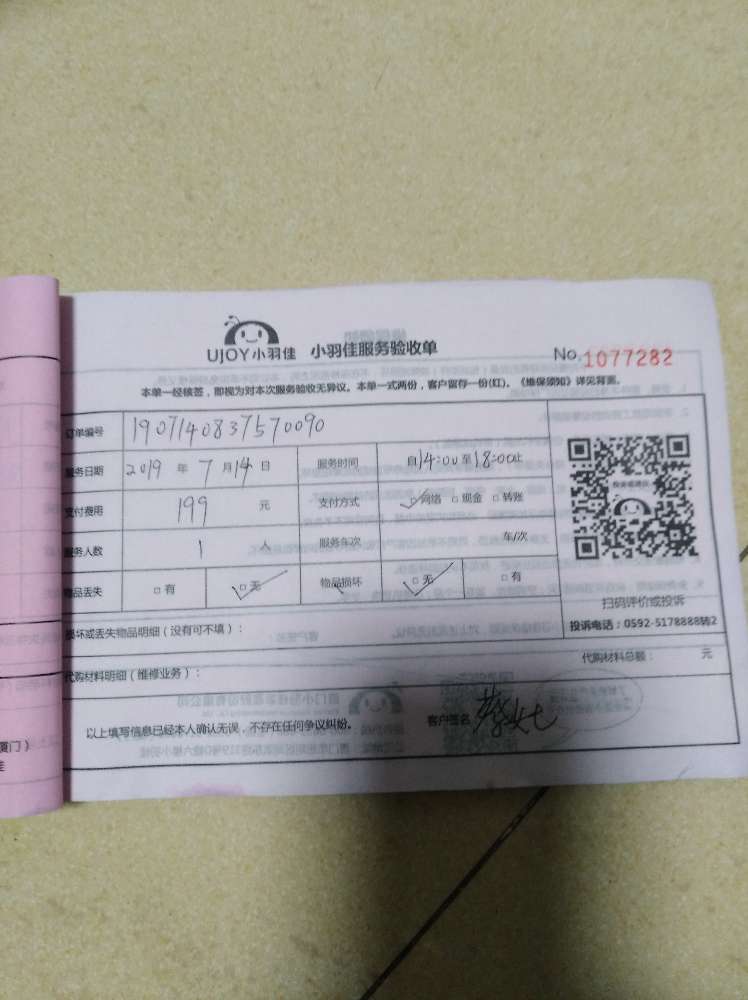 UJOY小羽佳 小羽佳服务验收单 No.1077282
本单一经核签，即视为对本次服务验收无异议。本单一式两份，客户留存一份(红)。《维保须知》详见背面。
订单编号 1907140837570090
服务日期 2019 年 7 月 14 日 服务时间 自14:00至18:00止
支付费用 199 元 支付方式 ☑网络 □现金 □转账
服务人数 1 人 服务车次 车/次
物品丢失 □有 ☑无 物品损坏 ☑无 □有
扫码评价或投诉
投诉电话：0592-5178888转2
损坏或丢失物品明细（没有可不填）：
代购材料明细（维修业务）： 代购材料总额： 元
以上填写信息已经本人确认无误，不存在任何争议纠纷。 客户签名
厦门）